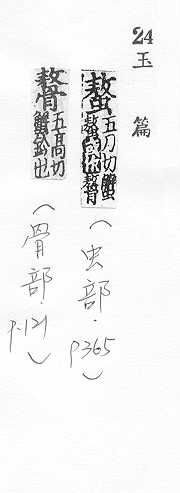 24 玉篇
螯 五刀切蟹
螯或作
（虫部．p365）
五高切
蟹螯也
（骨部．p.121）